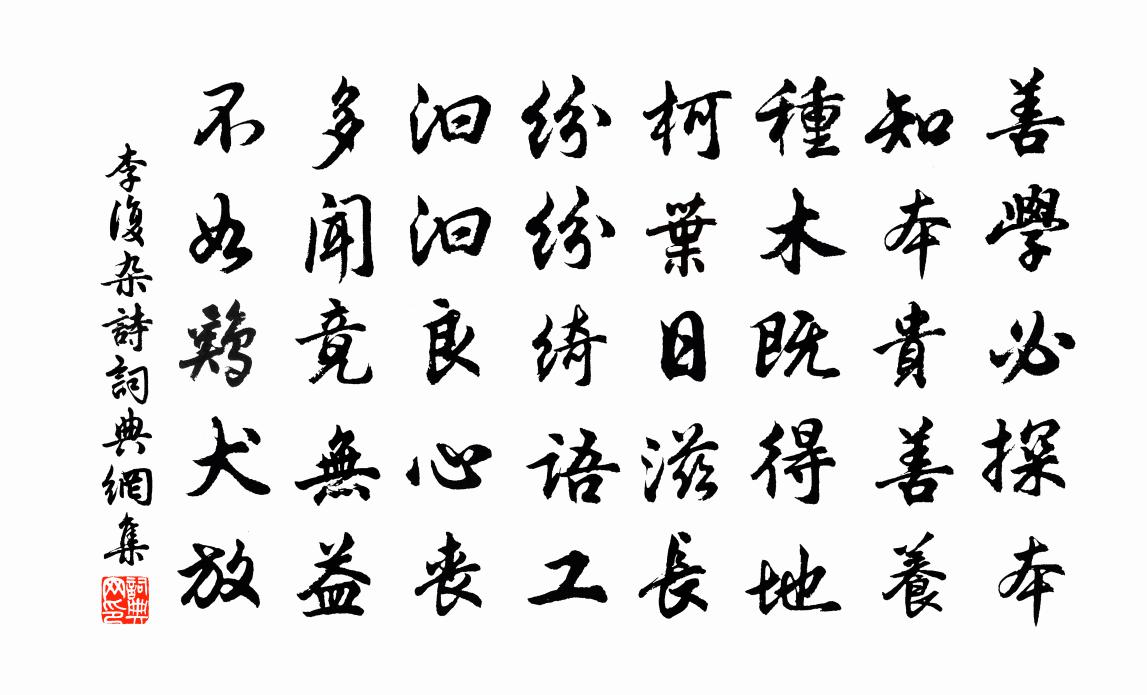 善學必探本
知本貴善養
種木既得地
柯葉日滋長
紛紛綺語工
汩汩良心喪
多聞竟無益
不如鷄犬放
李復杂詩詞典網集
詞典网印